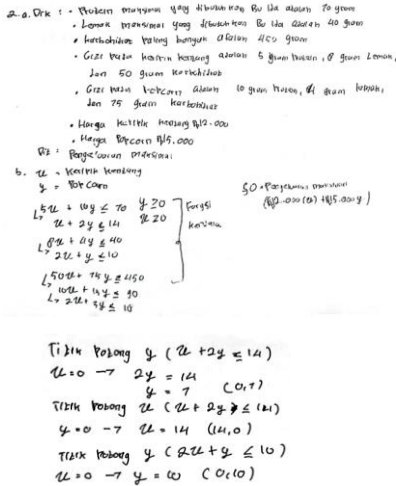 2.a. Dik : • Protein maksimal yang dibutuhkan Bu Ida adalah 70 gram
• Lemak maksimal yang dibutuhkan Bu Ida adalah 40 gram
• karbohidrat paling banyak adalah 450 gram
• Gizi pada keripik kentang adalah 5 gram Protein, 8 gram Lemak,
dan 50 gram karbohidrat
• Gizi pada Popcorn adalah 10 gram Protein, 4 gram lemak,
dan 75 gram karbohidrat
• Harga keripik kentang Rp12.000
• Harga Popcorn Rp15.000
Dit : Pengeluaran maksimal
b. x = keripik kentang
y = Popcorn
5x + 10y ≤ 70 y ≥ 0
x + 2y ≤ 14 x ≥ 0
Fungsi
kendala
8x + 4y ≤ 40
2x + y ≤ 10
50x + 75y ≤ 450
10x + 15y ≤ 90
2x + 3y ≤ 18
f.O = Pengeluaran maksimal
(Rp12.000(x) + Rp15.000y)
Titik Potong y (x + 2y ≤ 14)
x = 0 → 2y = 14
y = 7 (0,7)
Titik Potong x (x + 2y ≤ 14)
y = 0 → x = 14 (14,0)
Titik Potong y (2x + y ≤ 10)
x = 0 → y = 10 (0,10)